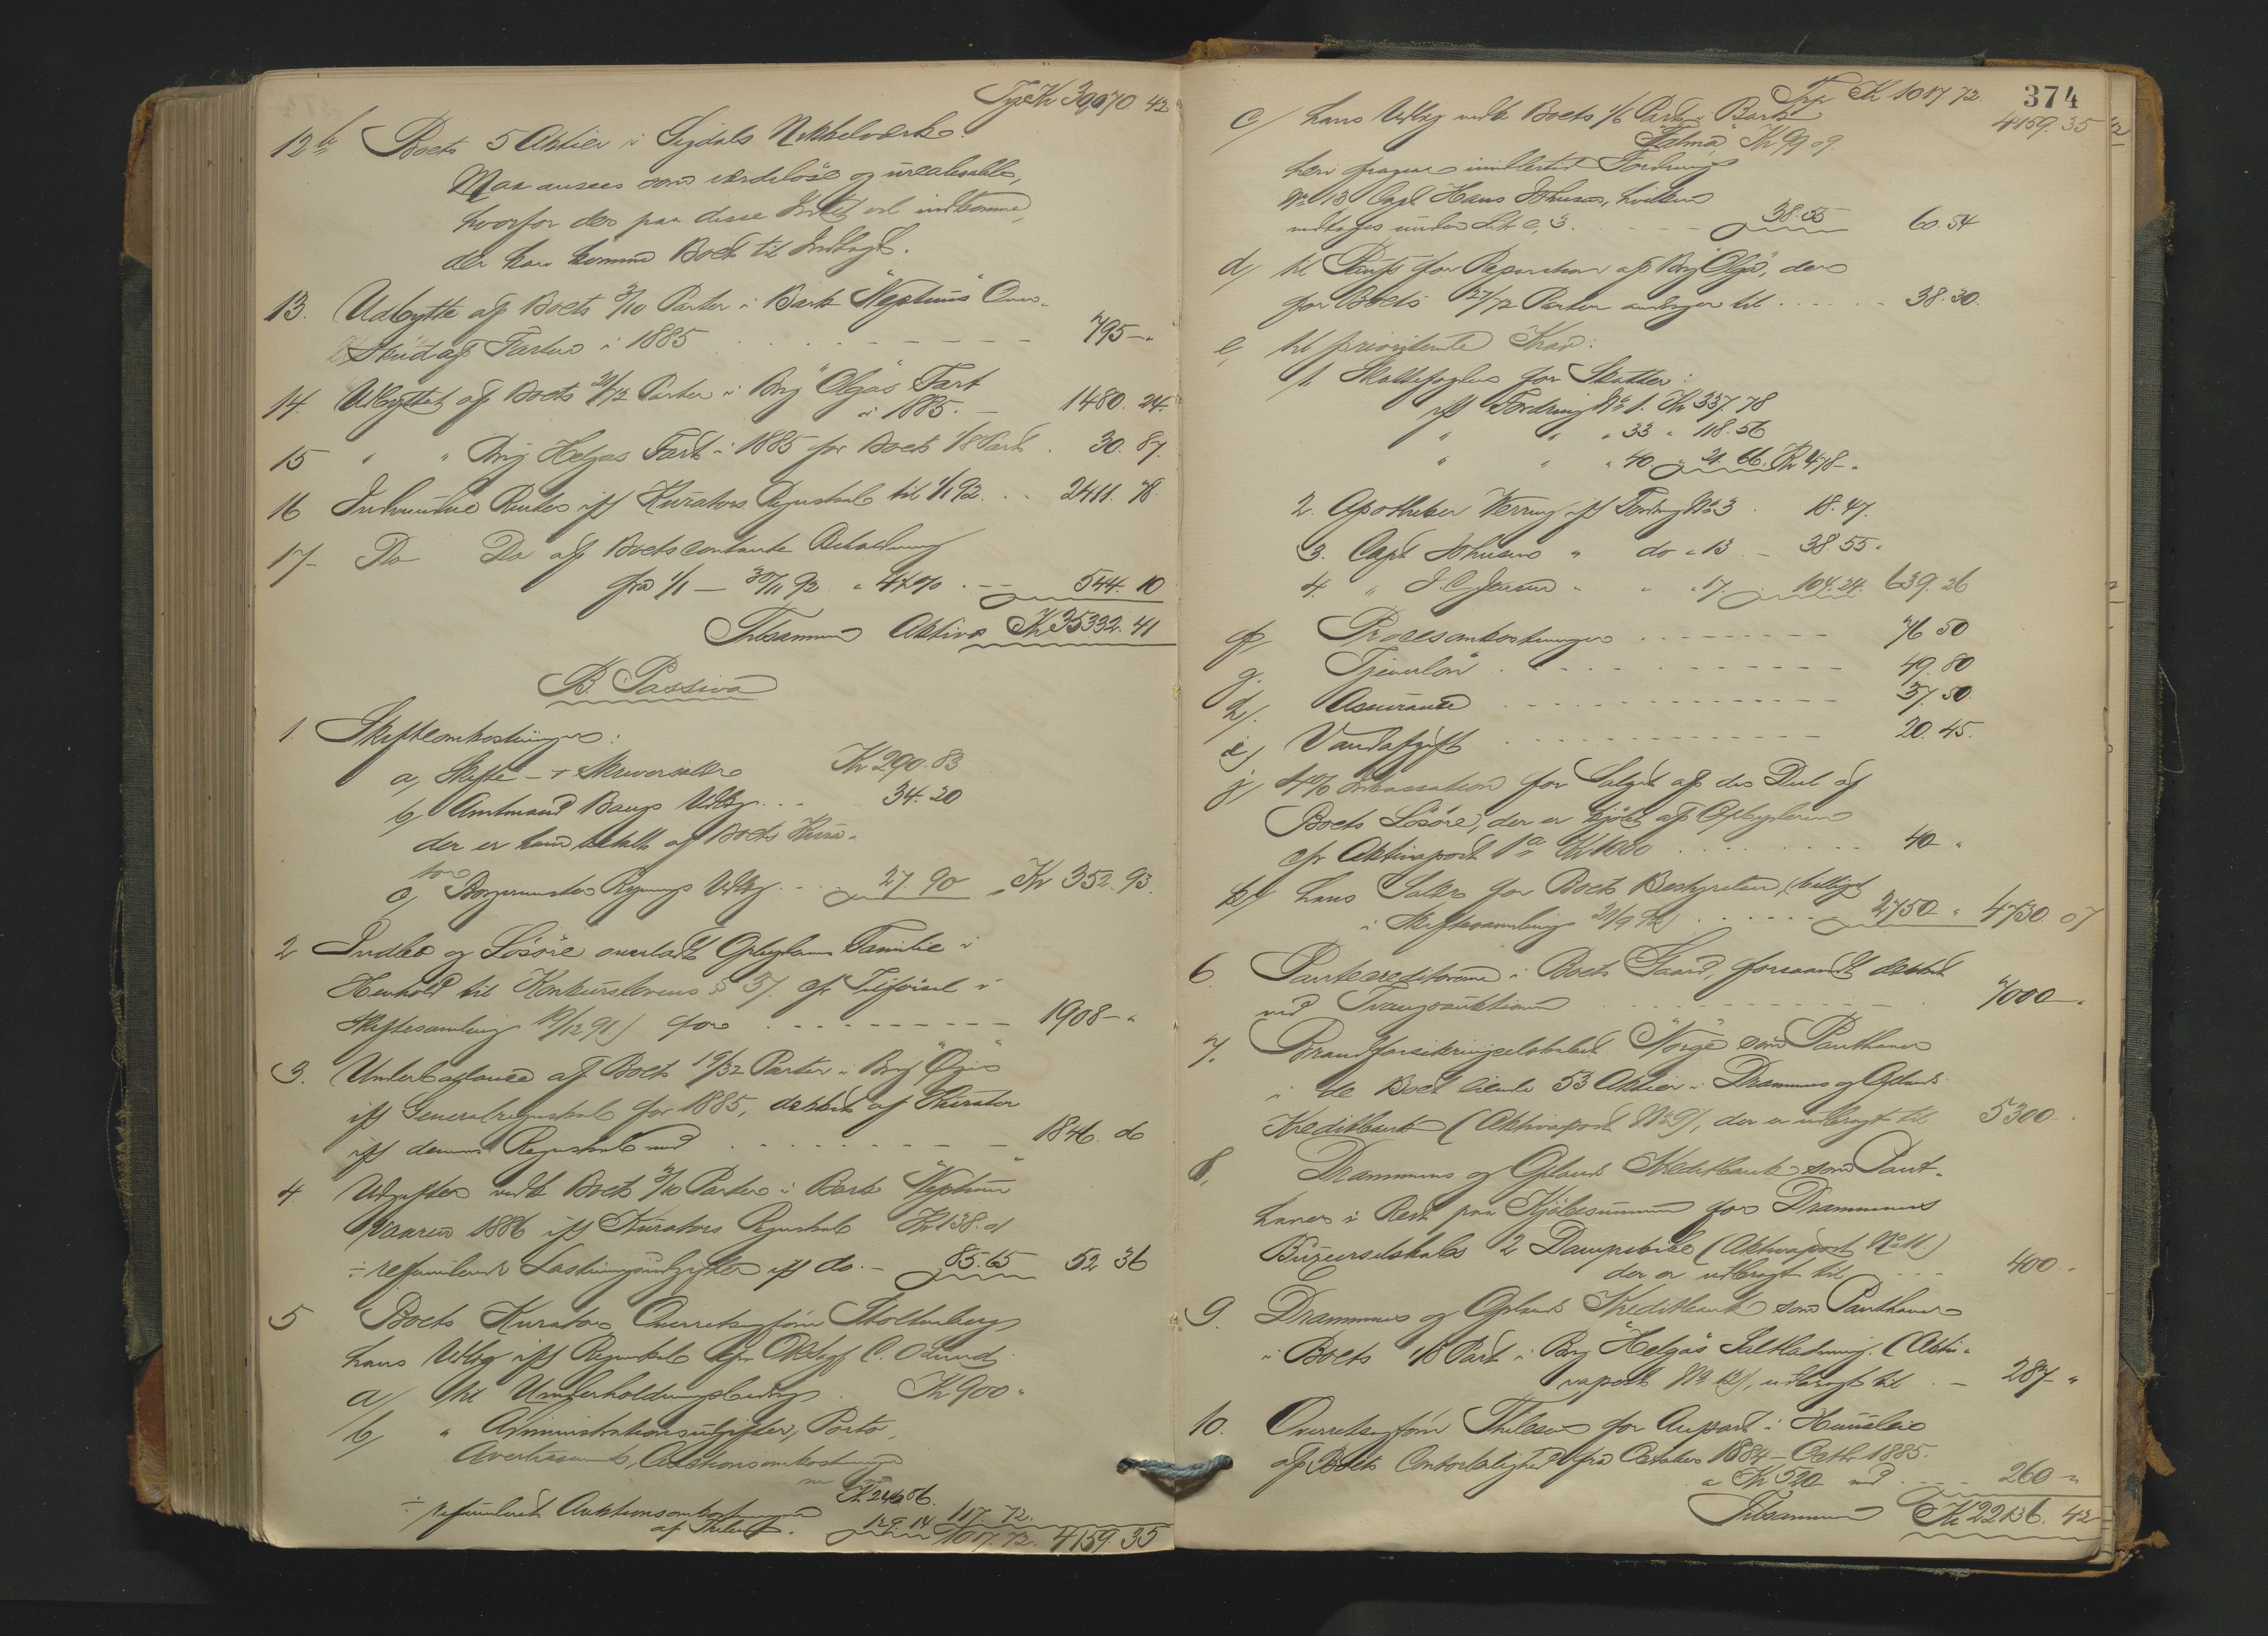 Trsp Kr 30,070. 42
12 b Boets 5 Aktier i Sigdals Nikkelværk.
Maa ansees som værdiløse og urealisable,
hvorfor der paa disse Intet vil indkomme,
der kan komme Boet til Indtægt.
13. Udbytte af Boets 3/10 Parter i Bark "Neptuns" Over-
skud af Farten i 1885 795 - "
14. Udbyttet af Boets 21/72 Parter i Brig "Olgas" Fart
i 1885. - 1480. 24.
15 " " Brig Helgas Fart i 1885 for Boets 1/8 Part. 30. 87.
16 Indvundne Renter iflg Kurators Regnskab til 1/1 92. 2411. 78.
17- Do Do af Boets contante Beholdning
fra 1/1 - 30/11 92 a 4% 544. 10
Tilsammen Aktiva Kr 35332. 41
B. Passiva
1. Skifteomkostninger:
a, Skifte- + Skriversalær Kr 290. 83
b, Amtmand Bangs Udlæg 34. 20
der er ham betalt af Boets Kura-
tor
c, Borgermester Rynnings Udlæg 27. 90 Kr 352. 93.
2 Indbo og Løsøre overladt Opbyderens Familie i
Henhold til Konkurslovens § 37. cfr Tilførsel i
Skiftesamling 19/12 91) for 1908 - "
3. Underbalance af Boets 19/32 Parter i Brig "Ægir"
iflg Generalregnskab for 1885, dækket af Kurator
iflg dennes Regnskab med 1846. 06
4 Udgifter vedk Boets 3/10 Parter i Bark "Neptun"
Vaaren 1886 iflg Kurators Regnskab Kr 138. 01
÷ refunderede Lastningsudgifter iflg do. - 85. 65 52 36
5 Boets Kurator Overretssagfører Stoltenberg
hans Udlæg iflg Regnskab ved O.R.Sagf. C. O Lund:
a/ til Underholdningsbidrag. Kr 900 "
b/ " Administrationsudgifter, Porto,
Avertissement, Auctionsomkostninger
m m Kr 246 86.
÷ refunderet Auktionsomkostninger
af Thilert. 129. 14 117. 72.
1017. 72. 4159. 35
374
Trsp Kr 1017 72.
4159. 35
c/ hans Udlæg vedk Boets 1/6 Part i Bark
"Halma" Kr 99 09.
heri fragaar imidlertid Fordring
No 13 Capt Hans Johnsen, hvilken
medtages under Lit e, 3. 38. 55 60. 54
d/ til Rest for Reparation af Brig "Olga", der
for Boets 27/72 Parter andrager til 38. 30.
e, til prioriterte Krav:
1. Skattefogden for Skatter:
iflg Fordring No 1. Kr 337. 78
" " " 33 " 118. 56
" " " 40 " 21. 66. Kr 478 - "
2. Apotheker Werring iflg Fordring No 3. 18. 47.
3. Capt Johnsen " do " 13 - 38. 55.
4. " J. C. Jensen " " " 17. 104. 24. 639. 26
f/ Procesomkostninger 76 50
g. Tjenerløn 49. 80
h/. Assurance 37. 50.
i/ Vandafgift 20. 45.
j/ 4% Inkassation for Salget af den Del af
Boets Løsøre, der er kjøbt af Opbyderen
cfr Aktivapost 1 a Kr 1000 40 "
k/ hans Salær for Boets Bestyrelse (billiget
i Skiftesamling 21/9 92) 2750 " 4730. 07
6. Pantecreditorerne i Boets Gaard, forsaavidt dækket
ved Tvangsauktionen 7000 - "
7. Brandforsikringsselskabet "Norge" som Panthaver
i de Boet eiende 53 Aktier i Drammens og Oplands
Kreditbank (Aktivapost No 9), der er udbragt til 5300 -
8, Drammens og Oplands Kreditbank som Pant-
haver i Rest paa Kjøbesummen for Drammens
Buxeerselskabs 2 Dampskibe (Aktivapost No 11.)
der er udbragt til 400 "
9. Drammens og Oplands Kreditbank som Panthaver
i Boets 1/8 Part i Brig "Helgas" Saltladning. (Akti-
vapost No 12), udbragt til - 287 - "
10. Overretssagfører Thilesen for Anpart i Husleie
af Boets Contorleilighed fra Oktober 1884 - Octbr 1885.
a Kr 520 med 260 - "
Tilsammen Kr 22136. 42